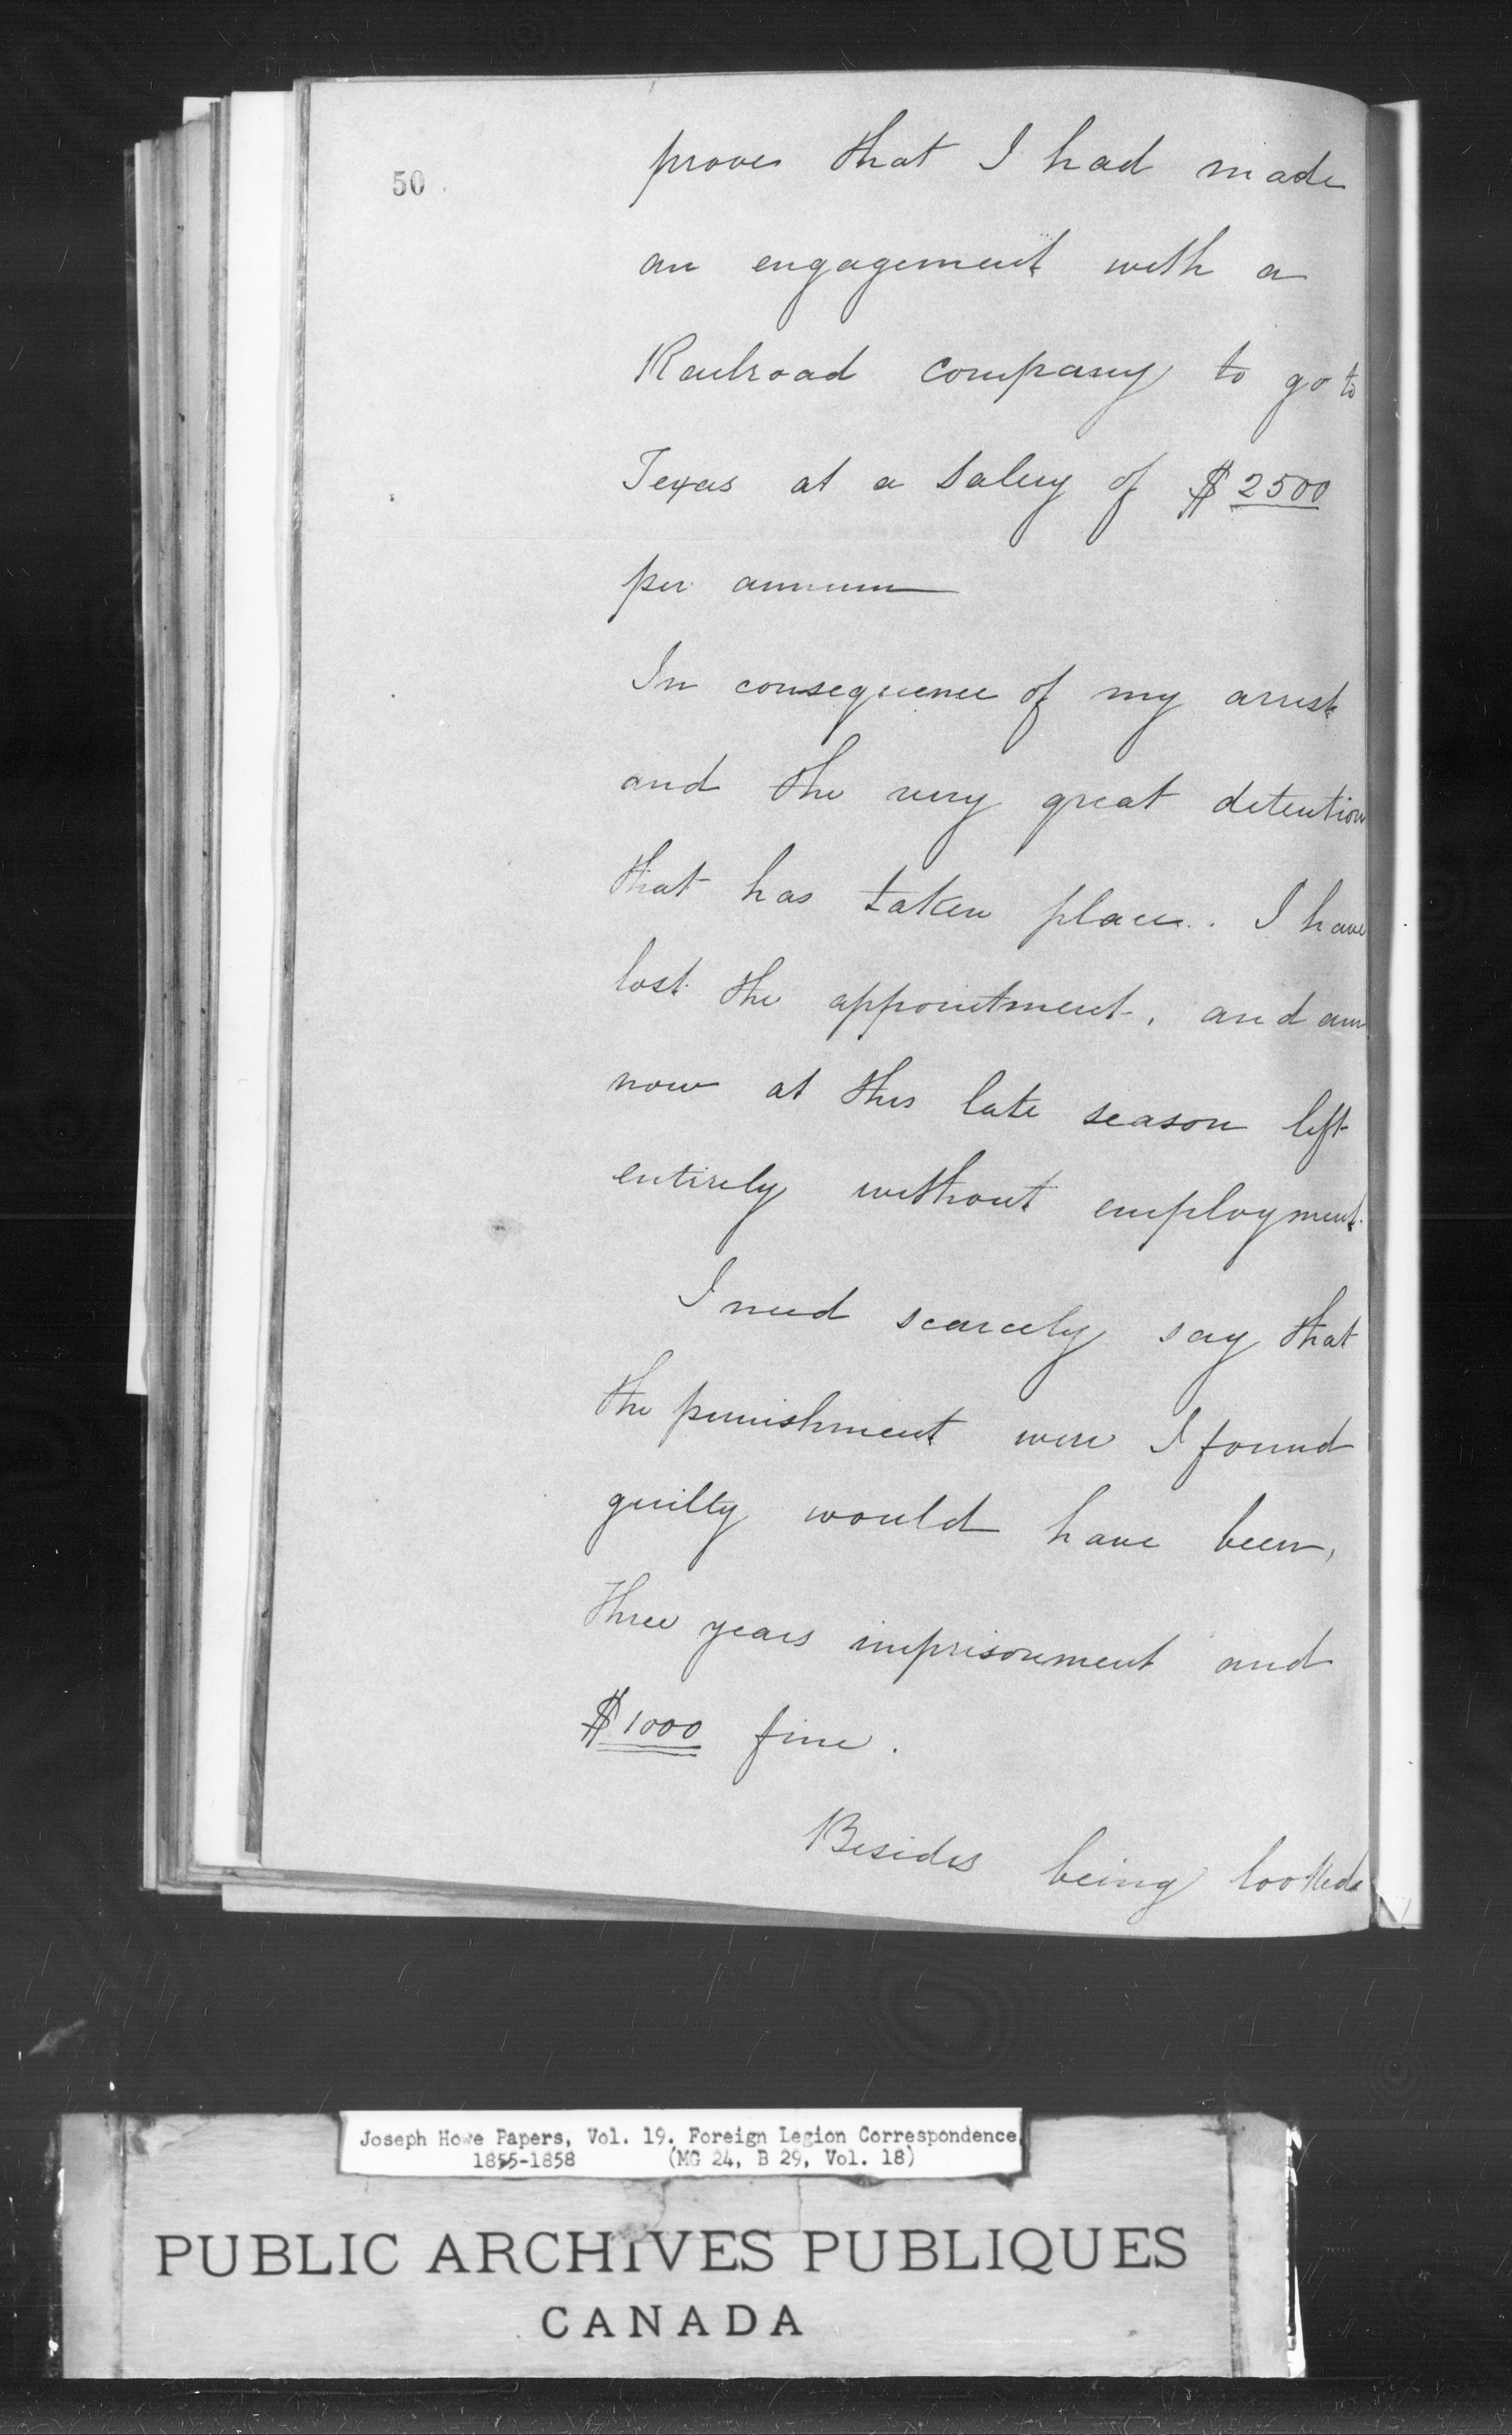 50
proves that I had made
an engagement with a
Railroad company to go to
Texas at a Salery of $2500
per annum
In consequence of my arrest
and the very great detention
that has taken place. I have
lost the appointment, and am
now at this late season left
entirely without employment.
I need scarcely say that
the punishment were I found
guilty would have been,
three years imprisonment and
$1000 fine.
Besides being looked
Joseph Howe Papers, Vol. 19. Foreign Legion Correspondence
1855-1858 (MG 24, B 29, Vol. 18)
PUBLIC ARCHIVES PUBLIQUES
CANADA